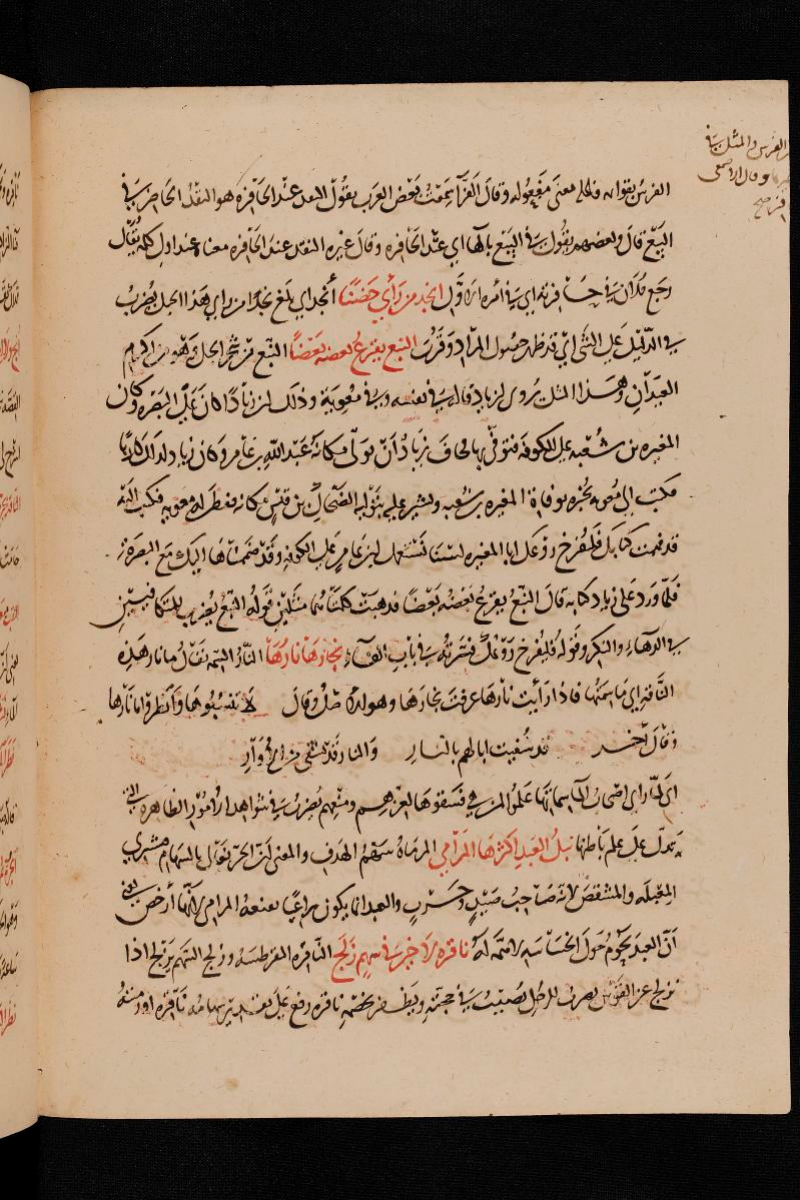 الفرس بقوائمه فاعلة معنى مفعوله وقال الفرّآ سمعت بعض العرب يقول النقد عند الحافره هو النقد الحاضر في
البيع قال وبعضهم يقول في البيع بالها اي عند الحافره وقال غيره النقد عند الحافره معناه عند اول كلمه يقال
رجع فلان في حافرته اي في امره الاوّل انجد من رأي حضنا أنجد اي بلغ نجدا من راي هذا الجبل يضرب
في الدليل على الشي اي قد ظهر حصول المراد وقرب النبع يقرع بعضه بعضا النبع من شجر الجبل وهو من اكرم
العيدان وهذا المثل يروى لزياد قاله في نفسه وفي معوية وذلك ان زيادا كان على البصره وكان
المغيره بن شعبه على الكوفه فتوفي بها فخاف زياد أن يولى مكانه عبد الله بن عامر وكان زياد لذلك كارها
فكتب الى معويه يخبره بوفاة المغيره بن شعبه ويشير عليه بتوليه الضحاك بن قيس مكانه ففطن له معويه فكتب اليه
قد فهمت كتابك فليفرخ روعك ابا المغيره لسنا نستعمل ابن عامر على الكوفه وقد ضممناها اليك مع البصرة
فلما ورد على زياد كتابه قال النبع يقرع بعضه بعضا فذهبت كلمتاهما مثلين قوله النبع يضرب للمتكافيين
في الدهاء والنكر وقوله فليفرخ روعك فسرته في باب الفاء نجارها نارها النار السمه تقول ما نار هذه
الناقه اي ما سمتها فاذا رأيت نارها عرفت نجارها وهو لدى مثل وقال لا تنسبوها وانظروا ما نارها
وقال آخر قد سقيت ابالهم بالنار والنار قد تشفي من الأوار
اي لما راى اصحاب الما سماتها علموا لمن هي فسقوها لعزهم ومنعتهم يضرب في شواهد الامور الظاهره التي
تدل على علم باطنها نبل العبد اكثرها المرامي المرماة سهم الهدف والمعنى ان الحر يغالي بالسهام فيشتري
المعبله والمشقص لانه صاحب صيد وحرب والعبد انما يكون راعيا تقنعه المرامي لانها أرخص
أن العبد يحوم حول الخساسه لا همة له ناقرة لا خير في سهم زلج الناقره المقرطسه وزلج السهم يزلج اذا
تزلج عن القوس يضرب للرجل يصيب في حجته ويظفر بخصمه ناقره رفع على تقدير سهامه ناقره اورميته